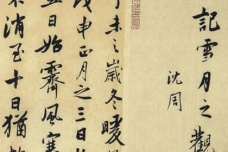 記雪月之觀
沈周
丁未之歲冬暖
戊申正月之三日
五日始霽風寒
未消至十日猶